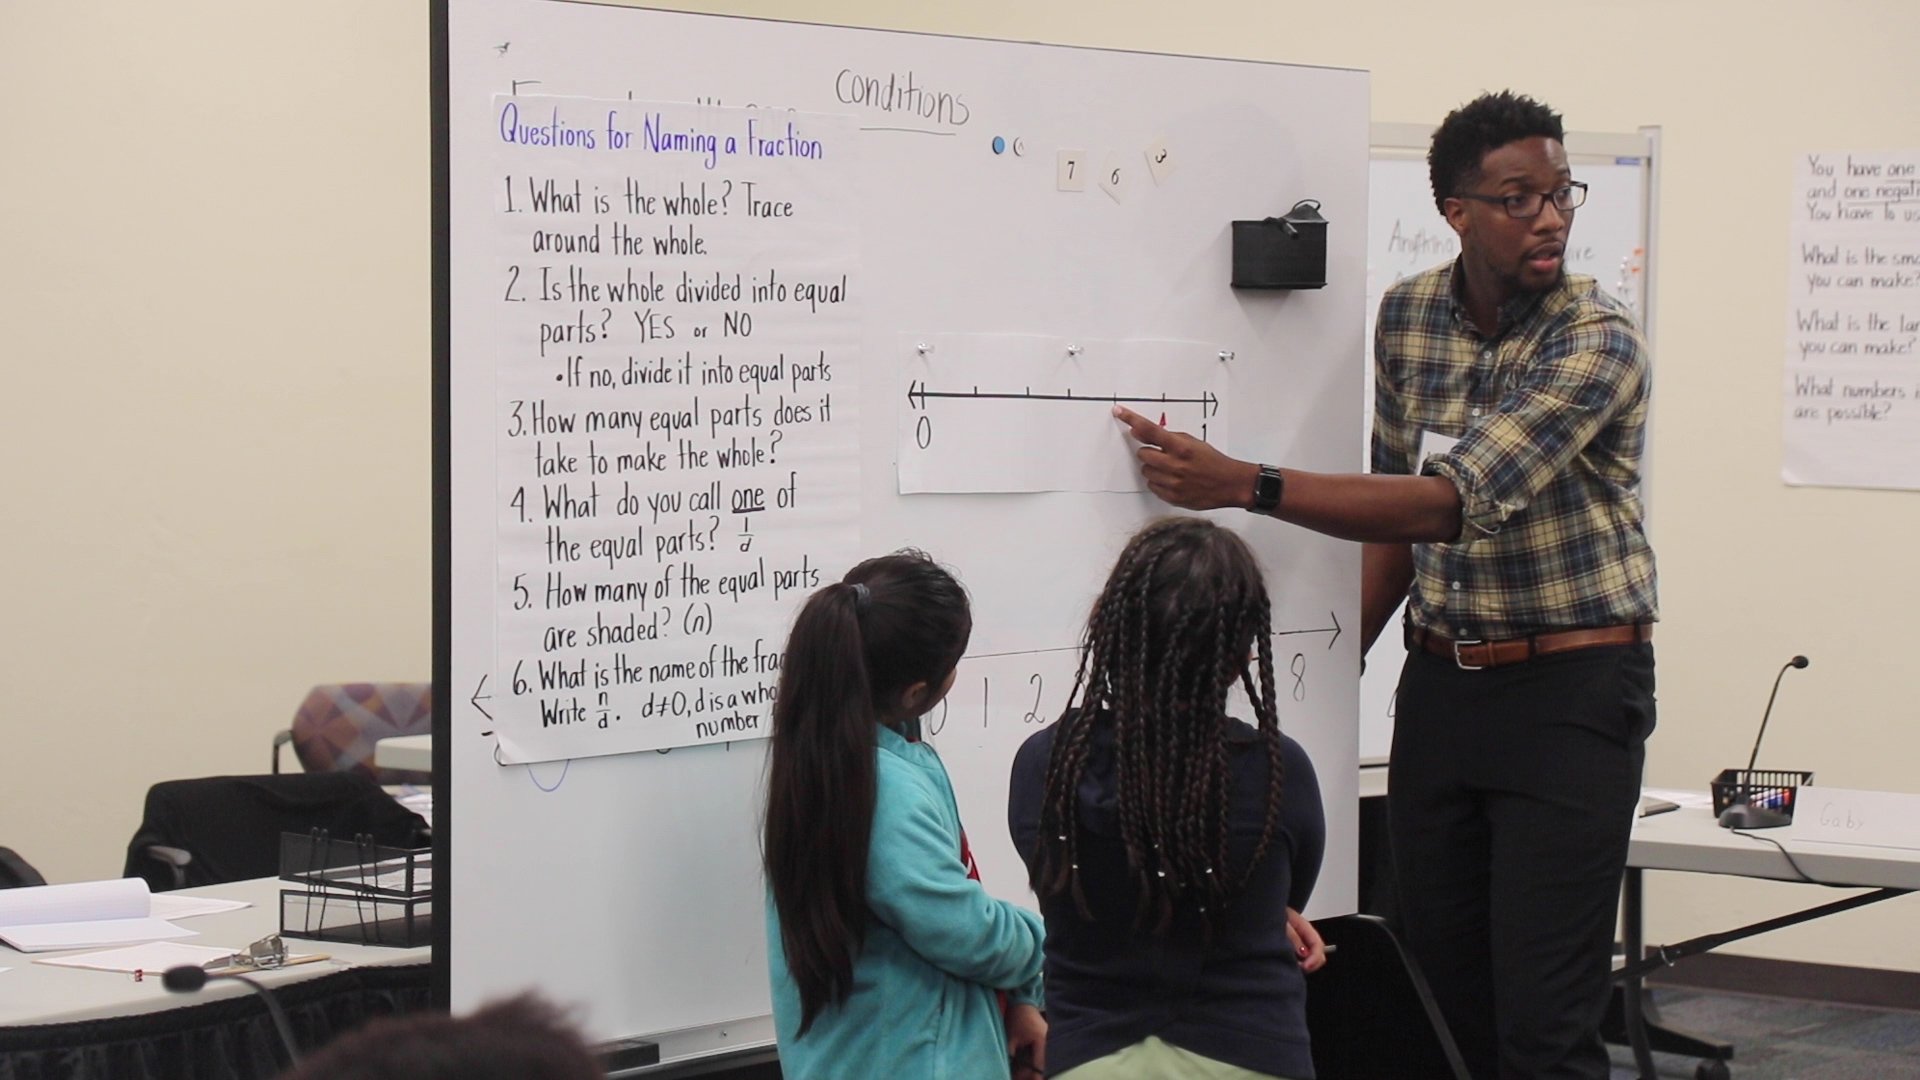 conditions
Questions for Naming a Fraction
1. What is the whole? Trace
around the whole.
2. Is the whole divided into equal
parts? YES or NO
• If no, divide it into equal parts
3. How many equal parts does it
take to make the whole?
4. What do you call one of
the equal parts? 1/d
5. How many of the equal parts
are shaded? (n)
6. What is the name of the
Write n/d. d≠0, d is a
number
7 6 3
0 1
0 1 2 8
Anything
You have one
and one
You have to
What is the
you can make?
What is the
you can make?
What numbers
are possible?
Gaby